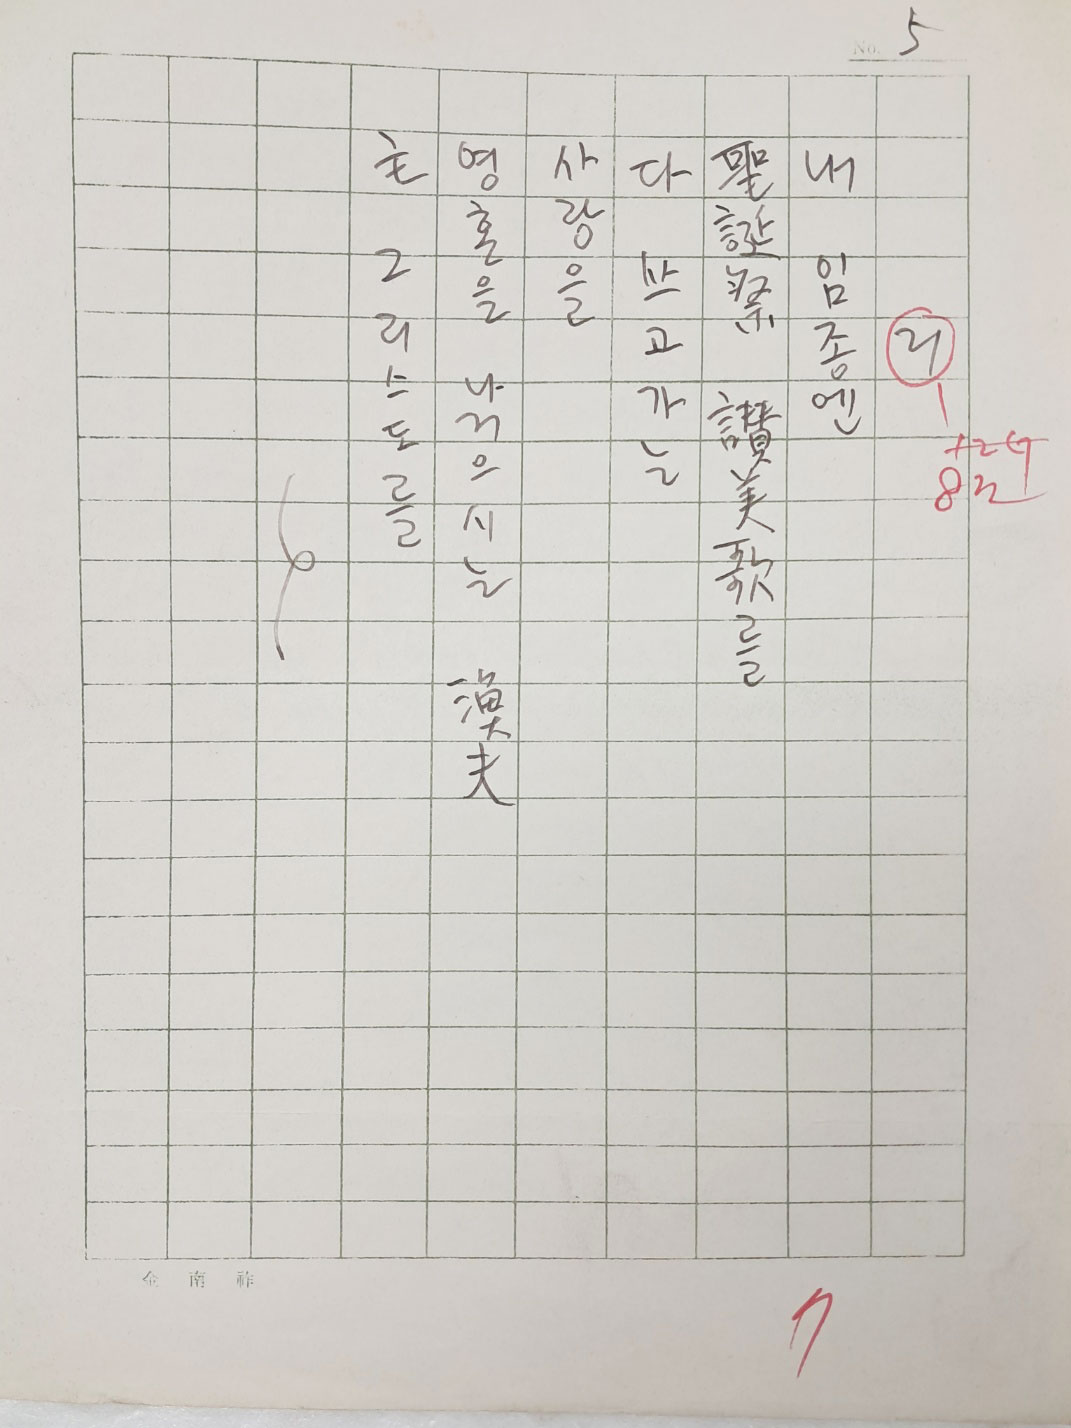 No. 5
리
내 임종엔
聖誕祭 讚美歌를
다 부르고 가는
사랑을
영혼을 낚으시는 漁夫
호 그리스도를
金南祚
7